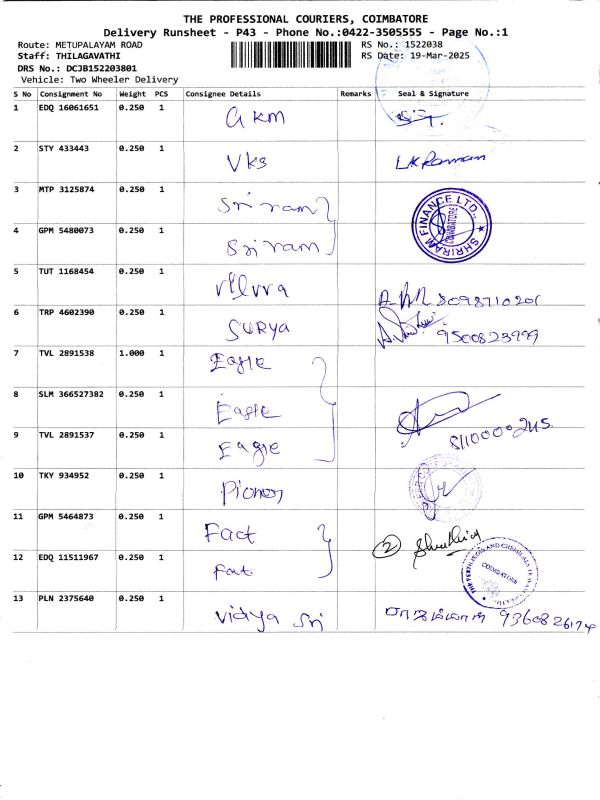 THE PROFESSIONAL COURIERS, COIMBATORE
Delivery Runsheet - P43 - Phone No.:0422-3505555 - Page No.:1
Route: METUPALAYAM ROAD RS No.: 1522038
Staff: THILAGAVATHI RS Date: 19-Mar-2025
DRS No.: DCJB152203801
Vehicle: Two Wheeler Delivery
S No Consignment No Weight PCS Consignee Details Remarks Seal & Signature
1 EDQ 16061651 0.250 1 akm
2 STY 433443 0.250 1 Vks LKRamman
3 MTP 3125874 0.250 1 Sriram
SHRIRAM FINANCE LTD., COIMBATORE
4 GPM 5480073 0.250 1 Sriram
5 TUT 1168454 0.250 1 8098710201
6 TRP 4602390 0.250 1 SURYA 9500823999
7 TVL 2891538 1.000 1 Eagle
8 SLM 366527382 0.250 1 Eagle
9 TVL 2891537 0.250 1 Eagle
10 TKY 934952 0.250 1 Pioner
11 GPM 5464873 0.250 1 Fact 2
12 EDQ 11511967 0.250 1 Fat
COIMBATORE
13 PLN 2375640 0.250 1 Vidya Sri 9360826174